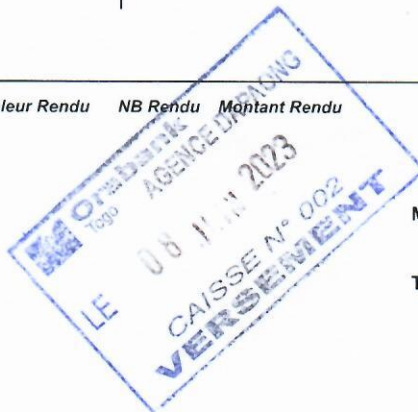 leur Rendu NB Rendu Montant Rendu
Orabank
Togo
AGENCE DAPAONG
LE 08 2023
CAISSE N° 002
VERSEMENT
M
T